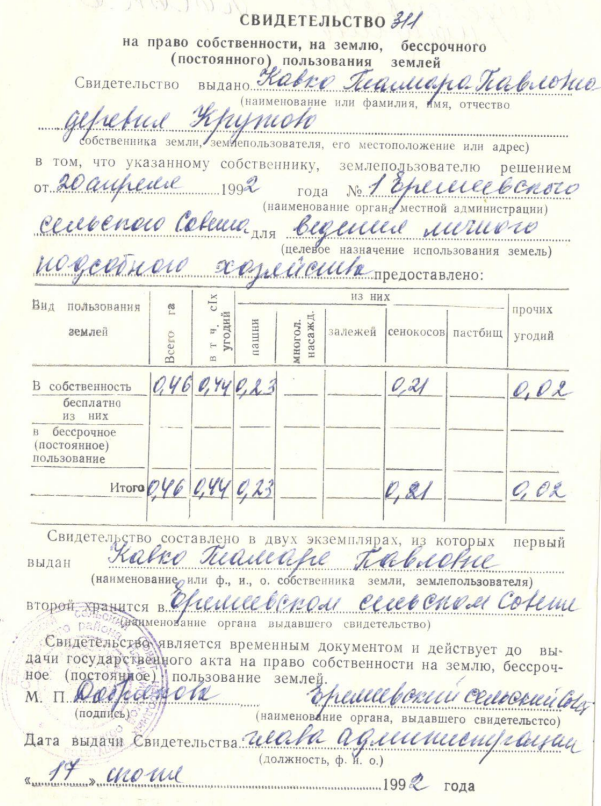 СВИДЕТЕЛЬСТВО 311
на право собственности, на землю, бессрочного
(постоянного) пользования землей
Свидетельство выдано Кавко Тамара Павловна
(наименование или фамилия, имя, отчество
деревня
собственника земли, землепользователя, его местоположение или адрес)
в том, что указанному собственнику, землепользователю решением
от 20 апреля 1992 года № 1 Еремеевского
(наименование органа местной администрации)
сельского Совета для ведения личного
(целевое назначение использования земель)
подсобного хозяйства предоставлено:
Вид пользования землей
Всего га
в т ч. с|х угодий
из них
пашни
многол. насажд.
залежей
сенокосов
пастбищ
прочих угодий
В собственность 0,46 0,44 0,23 0,21 0,02
бесплатно
из них
в бессрочное
(постоянное)
пользование
Итого 0,46 0,44 0,23 0,21 0,02
Свидетельство составлено в двух экземплярах, из которых первый
выдан Кавко Тамаре Павловне
(наименование или ф., и., о. собственника земли, землепользователя)
второй хранится в Еремеевском сельском Совете
(наименование органа выдавшего свидетельство)
Свидетельство является временным документом и действует до вы-
дачи государственного акта на право собственности на землю, бессроч-
ное (постоянное) пользование землей.
М. П. Еремеевский сельский Совет
(подпись) (наименование органа, выдавшего свидетельстсо)
Дата выдачи Свидетельства глава администрации
(должность, ф. и. о.)
« 17 » июня 1992 года